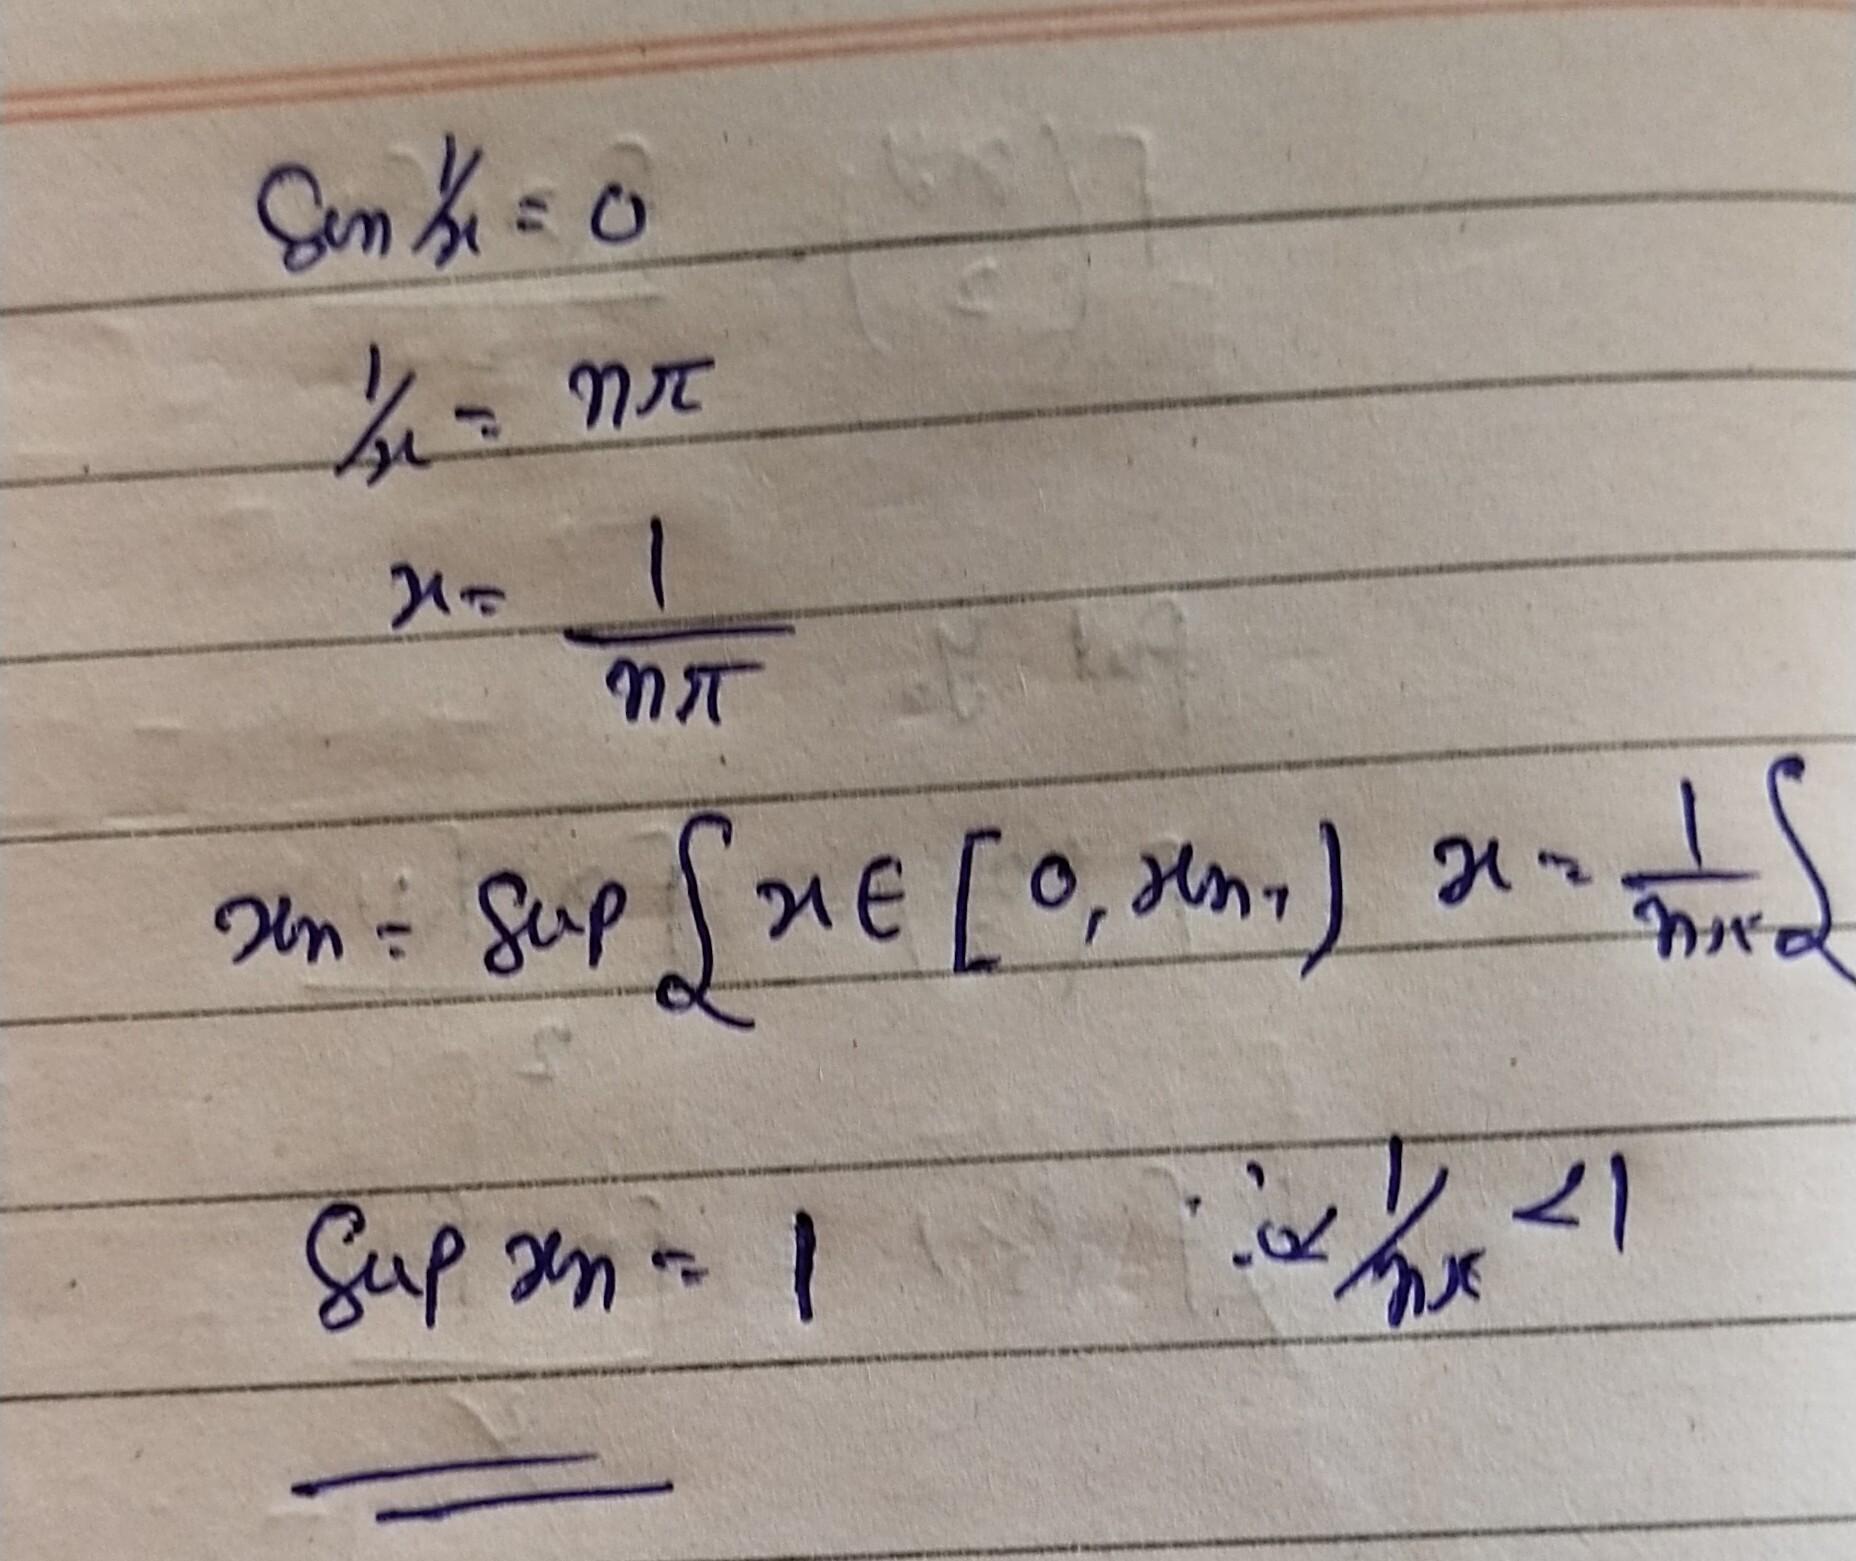 Sin 1/x = 0
1/x = nπ
x = 1/nπ
xn = Sup { x ∈ [0, xn-1) x = 1/nπ }
Sup xn = 1 ∵ 1/nπ < 1